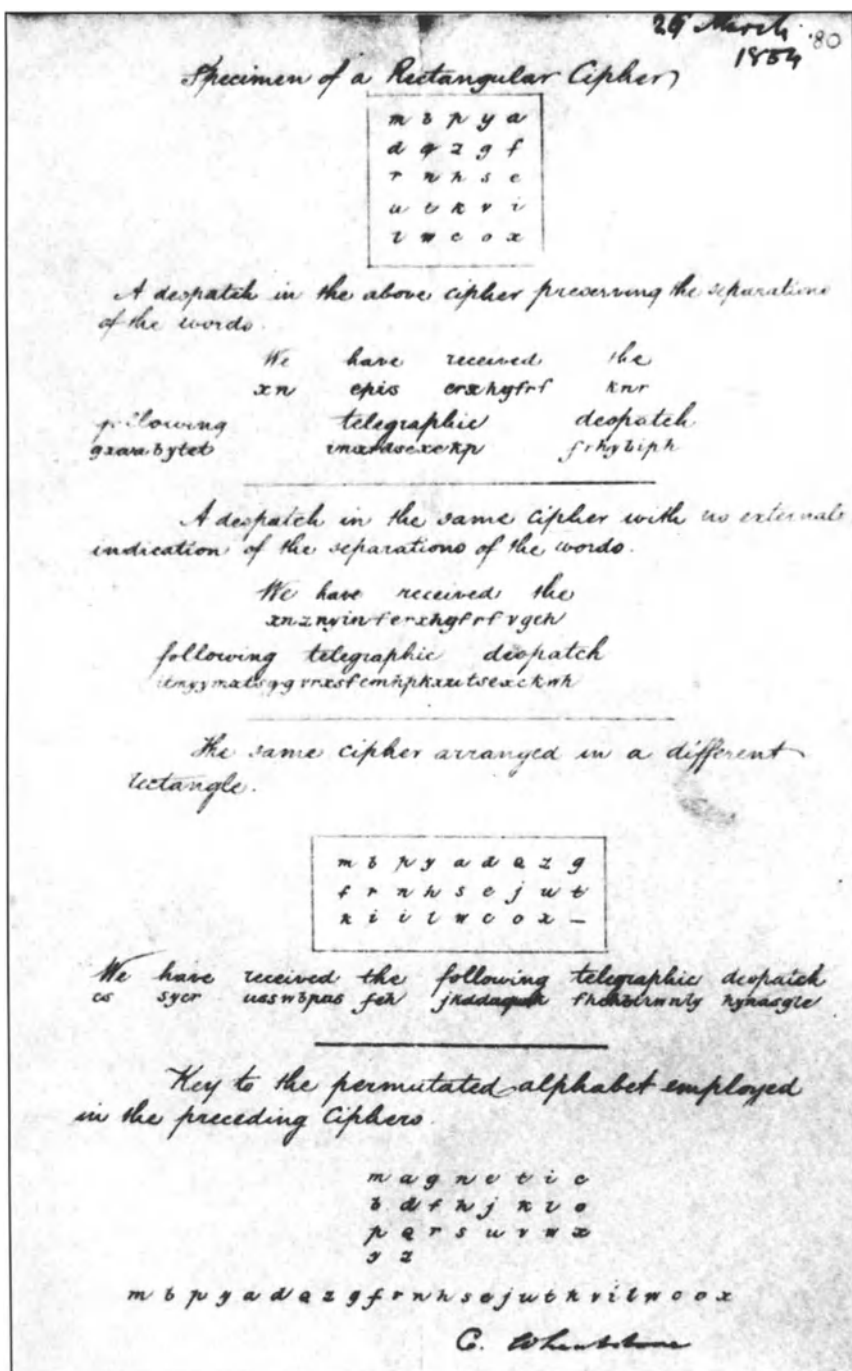 26 March
1854
.80
Specimen of a Rectangular Cipher
m b p y a
d q z g f
r n h s e
u t k v i
l w c o x
A despatch in the above cipher preserving the separations
of the words.
We have received the
xn epis knr
following telegraphic despatch
A despatch in the same cipher with no external
indication of the separations of the words.
We have received the
following telegraphic despatch
The same cipher arranged in a different
rectangle.
m b p y a d q z g
f r n h s e j u t
k v i l w c o x –
We have received the following telegraphic despatch
cs sycr
Key to the permutated alphabet employed
in the preceding Ciphers.
m a g n e t i c
b d f h j k l o
p q r s u v w x
y z
m b p y a d q z g f r n h s e j u t k v i l w c o x
C. Wheatstone